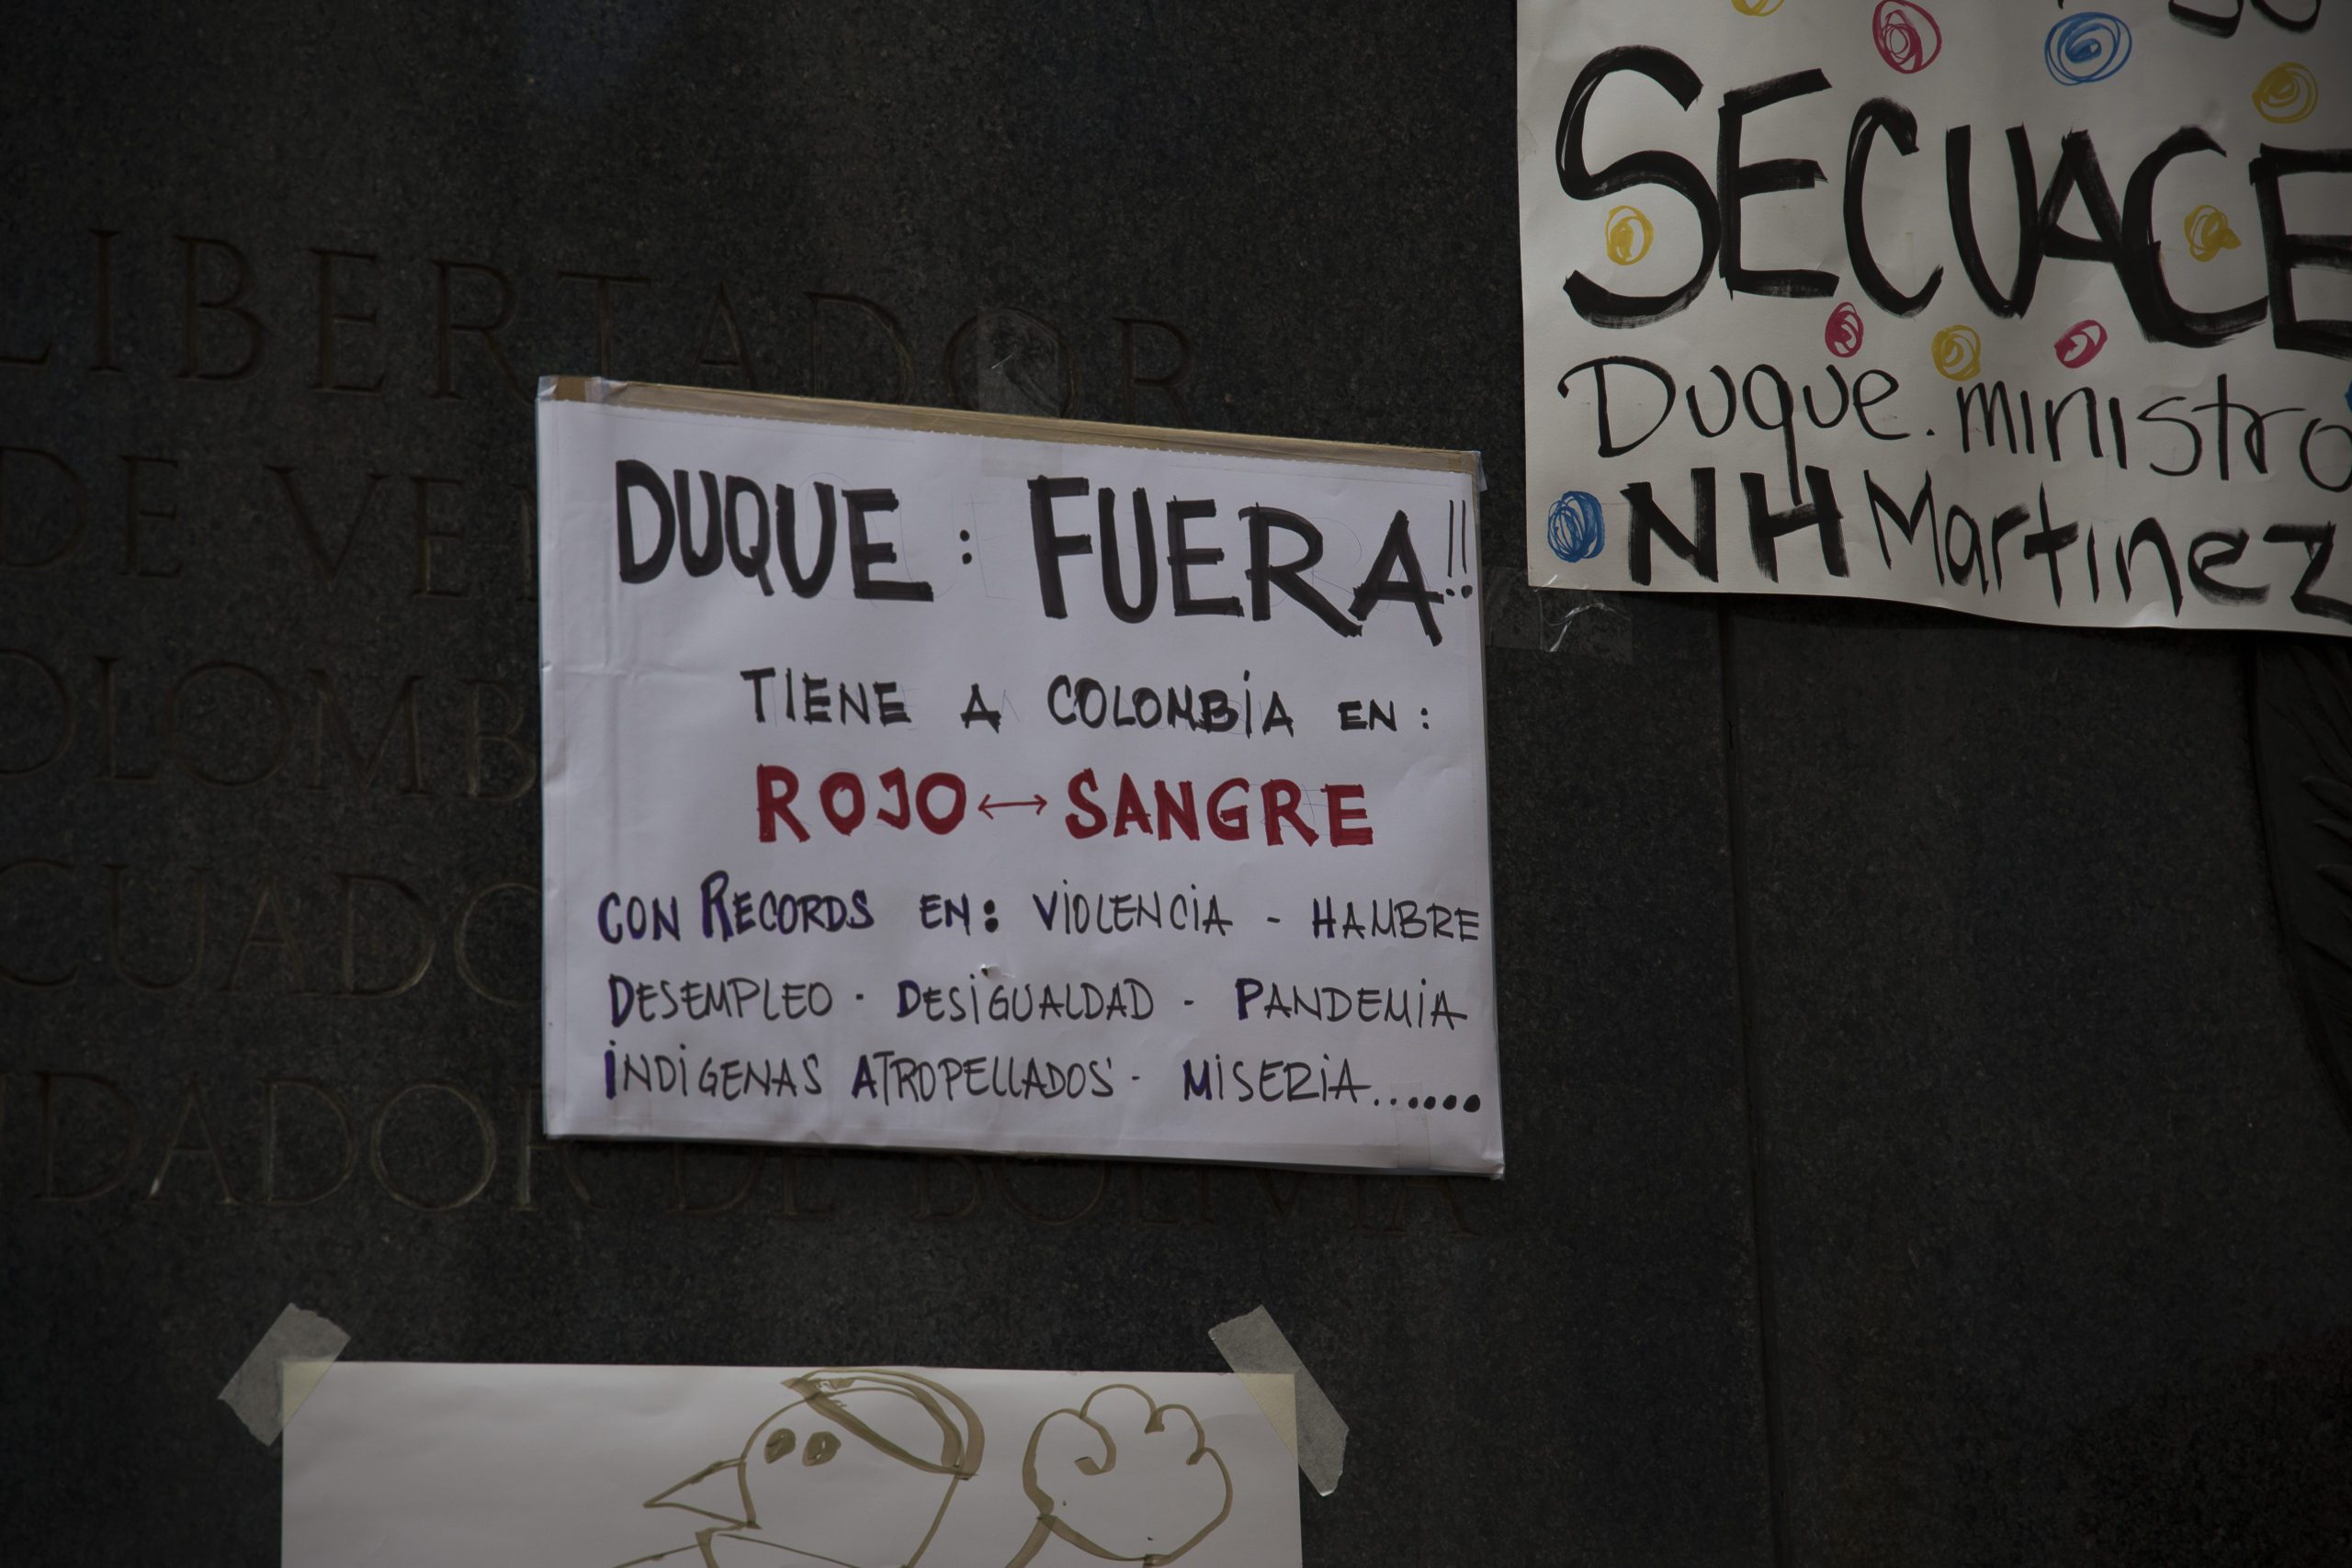 LIBERTADOR
DE VEN
OLOMB
CUADO
DADOR DE BOLIVIA
DUQUE : FUERA!!
TIENE A COLOMBIA EN :
ROJO ↔ SANGRE
CON RECORDS EN: VIOLENCIA - HAMBRE
DESEMPLEO · DESIGUALDAD - PANDEMIA
INDIGENAS ATROPELLADOS · MISERIA.......
SECUACE
Duque. ministro
NH Martinez